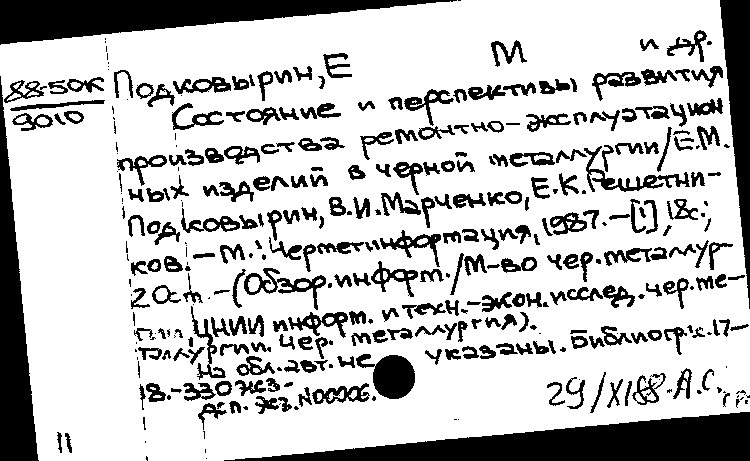 88-50К
9010
Подковырин, Е М и др.
Состояние и перспективы развития
производства ремонтно-эксплуатацион
ных изделий в черной металлургии/Е.М.
Подковырин, В.И.Марченко, Е.К.Решетни-
ков. - М.: Черметинформация, 1987. - [1], 18с.;
20см. - (Обзор. информ. /М-во чер. металлур-
гии, ЦНИИ информ. и техн.-экон. исслед. чер. ме-
таллургии. Чер. металлургия).
На обл. авт. не указаны. Библиогр.: с. 17-
18. - 330 экз.
Дсп. экз. N00006.
29/XI88. А.С.
11